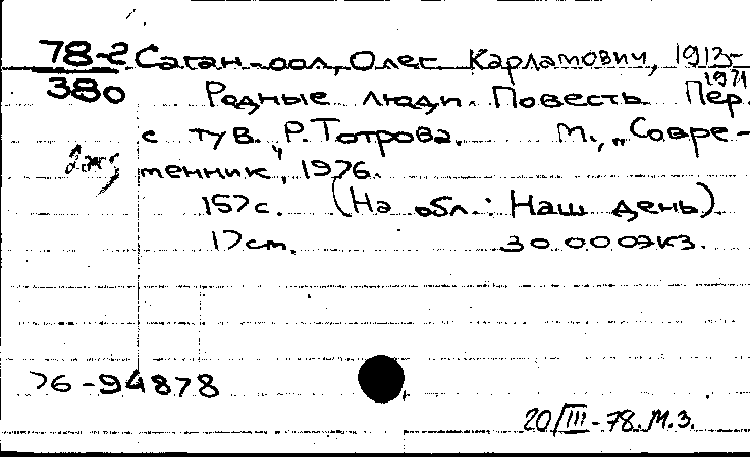 78-2 Саган-оол, Олег Карламович, 1913-
1971
380 Родные люди. Повесть. Пер.
с тув. Р. Тотрова. М., „Совре-
2 экз менник", 1976.
157 с. (На обл.: Наш день)
17 см. 30.000 экз.
76-94878
20/III-78. М.З.